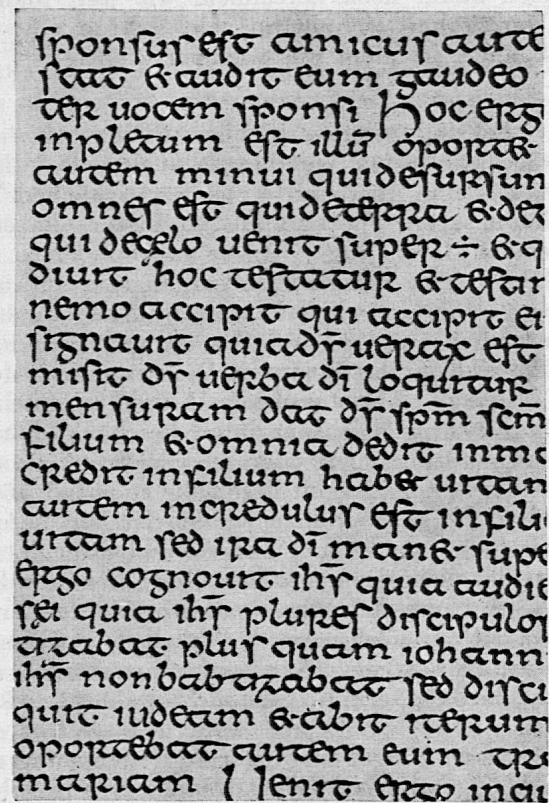 sponsus est amicus aute
stat & audit eum gaudeo
ter uocem sponsi hoc erg
inpletum est illū oport&
autem minui qui desursun
omnes est qui deterra & de
qui decęlo uenit super ÷ & q
diuit hoc testatur & testar
nemo accipit qui accipit ei
signauit quia dr̄ uerax est
misit dr̄ uerba dī loquitur
mensuram dat dr̄ spm̄ scm̄
filium & omnia dedit inmo
credit infilium hab& uitan
autem incredulus est infili
uitam sed ira dī man& supe
ergo cognouit ihr̄ quia audie
sei quia ihr̄ plures discipulos
tizabat plus quam iohann
ihr̄ non babtizabat sed disci
quit iudeam & abit iterum
oportebat autem eum tra
mariam Uenit ergo inciu